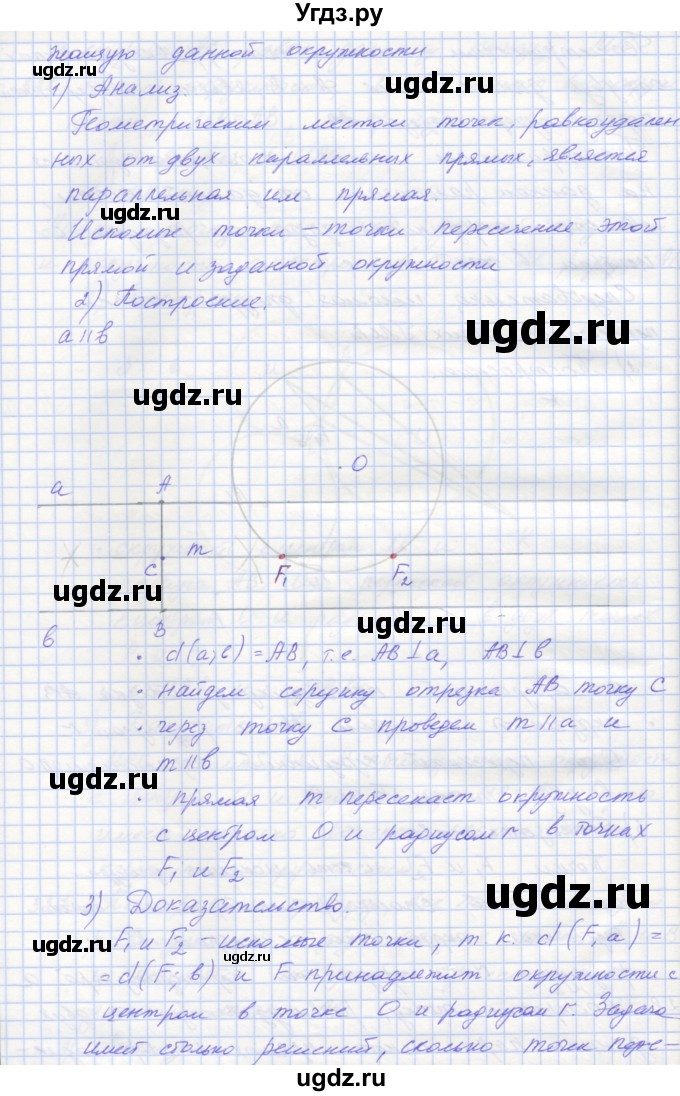 Угдз.ру
жащую данной окружности
1) Анализ.
Геометрическим местом точек, равноудален
ных от двух параллельных прямых, является
параллельная им прямая.
Искомые точки – точки пересечение этой
прямой и заданной окружности
2) Построение.
a || b
O
a A
C m F₁ F₂
b B
· d(a; b) = AB, т.е. AB ⊥ a, AB ⊥ b
· найдем середину отрезка AB точку C
· через точку C проведем m || a и
m || b
· прямая m пересекает окружность
с центром O и радиусом r в точках
F₁ и F₂
3) Доказательство.
F₁ и F₂ – искомые точки, т.к. d(F; a) =
= d(F; b) и F принадлежит окружности с
центром в точке O и радиусом r. Задача
имеет столько решений, сколько точек пере-
ugdz.ru
ugdz.ru
ugdz.ru
ugdz.ru
ugdz.ru
ugdz.ru
ugdz.ru
ugdz.ru
ugdz.ru
ugdz.ru
ugdz.ru
ugdz.ru